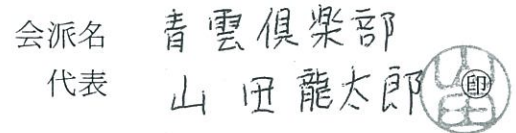 会派名 青雲倶楽部
代表 山田龍太郎 ㊞